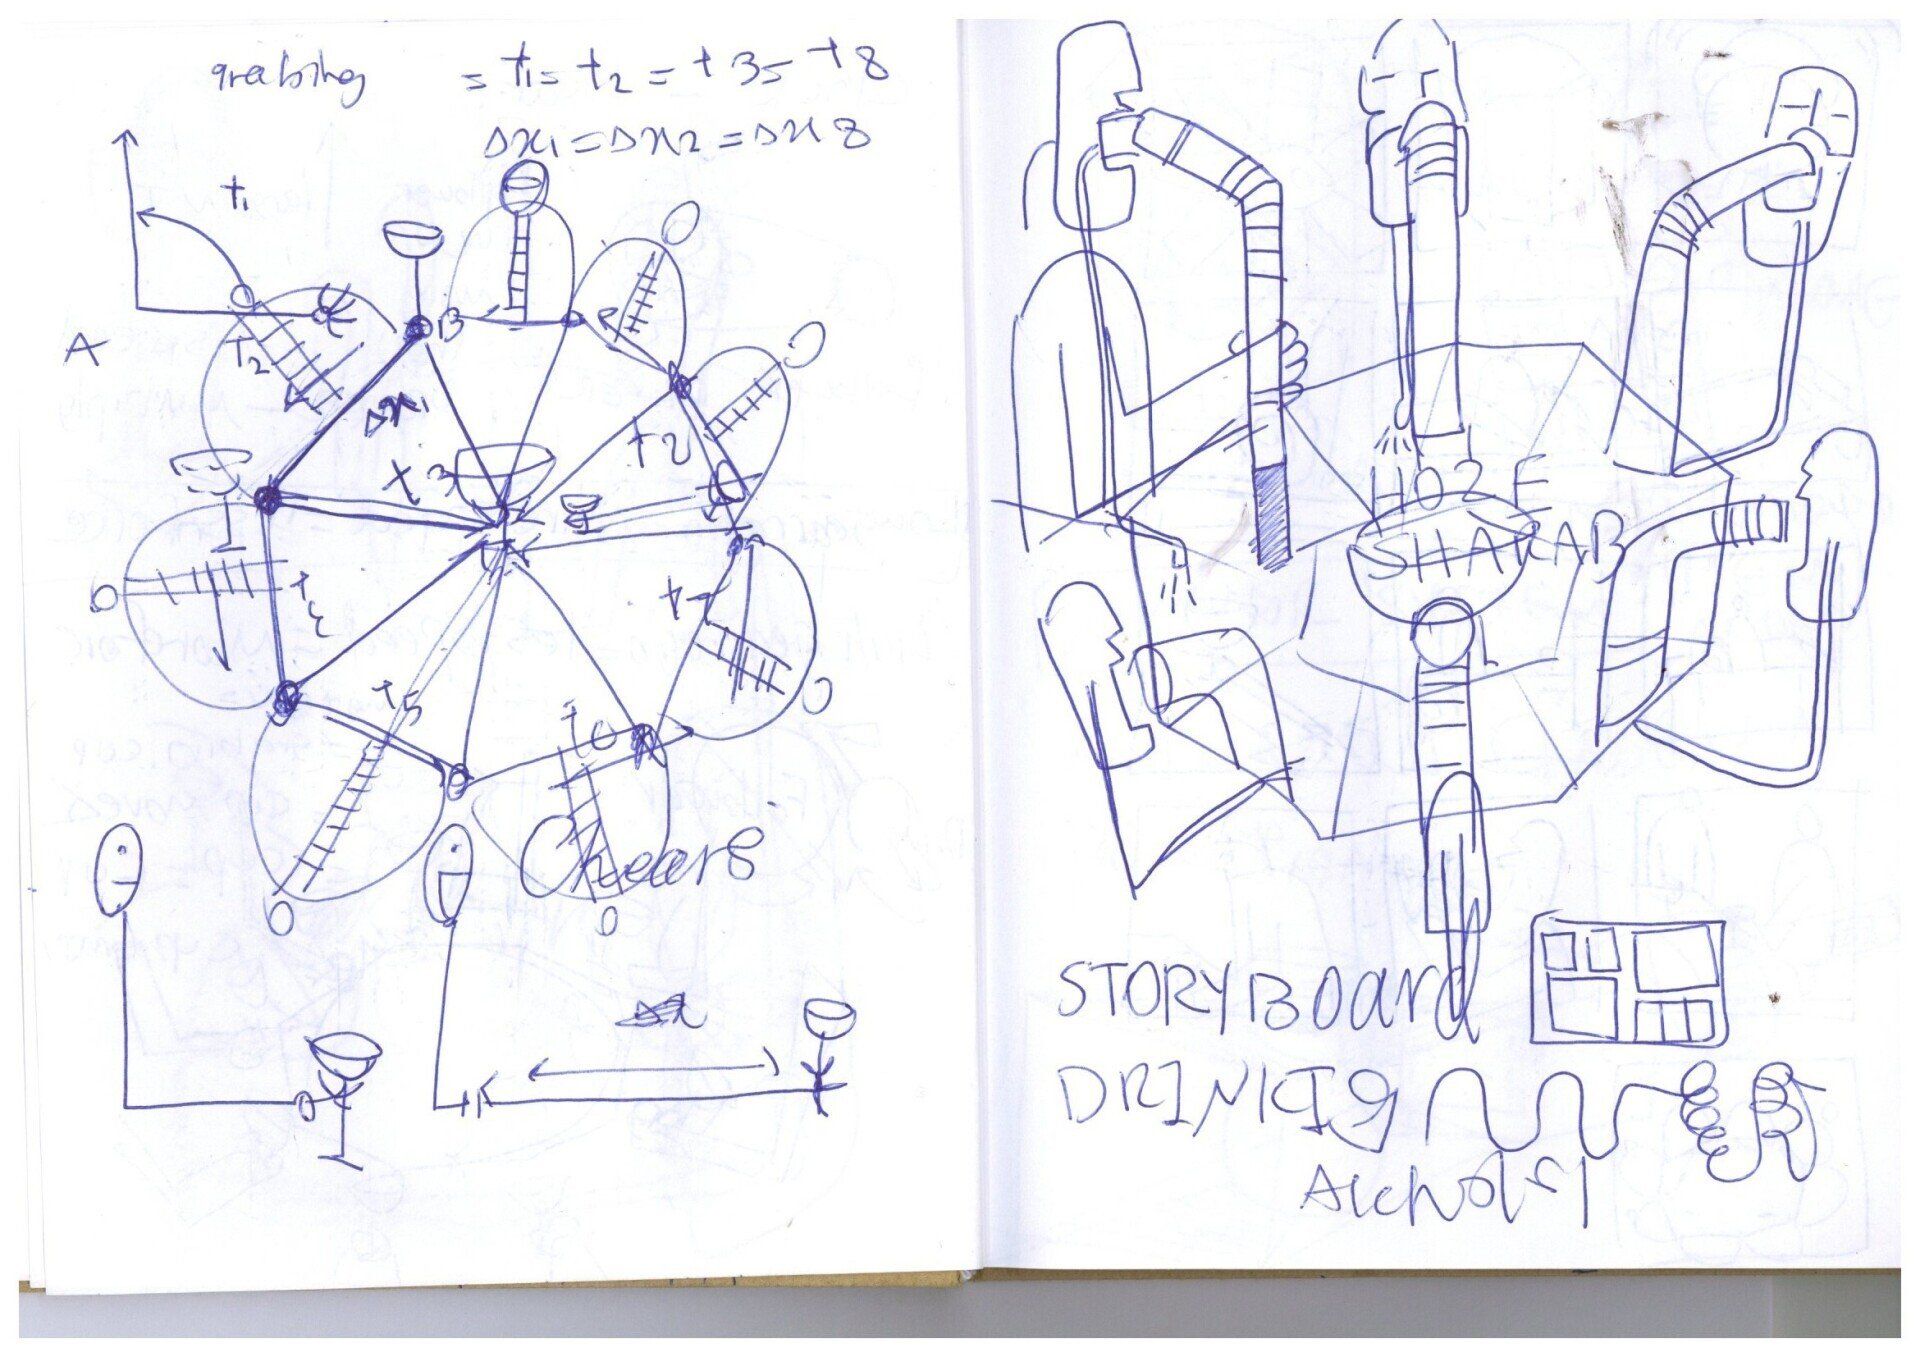 grabing = t1 = t2 = t3 = t8
Δx1 = Δx2 = Δx8
t1
A
B
t2
Δx1
t3
t2
t5
Chears
Δx
HOZE
SHARAB
STORYBoard
DRINKIg